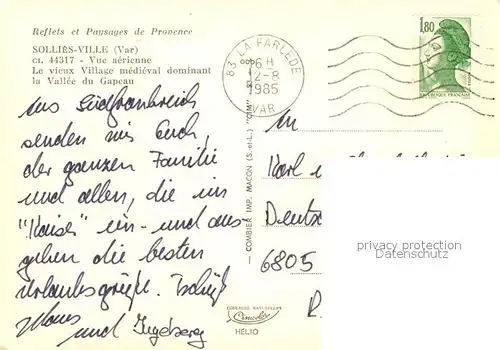 Reflets et Paysages de Provence
SOLLIÈS-VILLE (Var)
CI. 44317 - Vue aérienne
Le vieux Village médiéval dominant
la Vallée du Gapeau
83 LA FARLEDE
16 H
12-8
1985
VAR
1,80
REPUBLIQUE FRANÇAISE
Aus Südfrankreich
senden wir Euch,
der ganzen Familie
und allen, die im
"Kaiser" ein- und aus-
gehen die besten
Urlaubsgrüße. Tschüß
Klaus
und Ingeborg
COMBIER IMP. MACON (S.-et-L.) "CIM"
HÉLIO
An
Karl
Deutsc
6805
privacy protection
Datenschutz